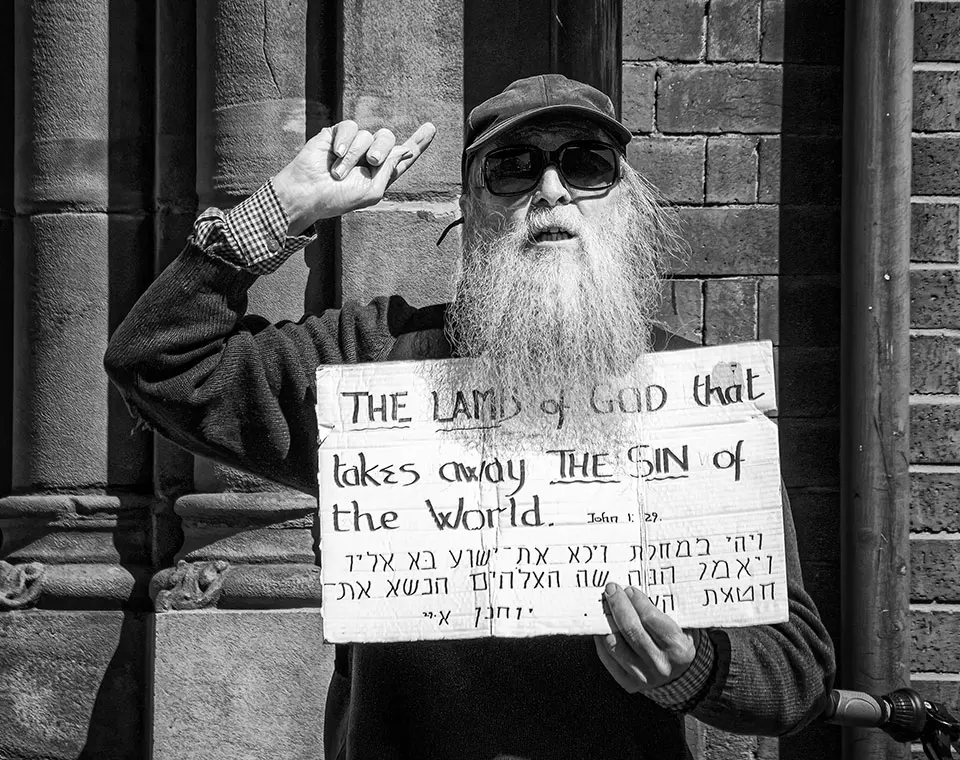 THE LAMB of GOD that
takes away THE SIN of
the World. John 1: 29.
ויהי במחרת וירא את־ישוע בא אליו
ויאמר הנה שה האלהים הנשא את־
חטאת . יוחנן